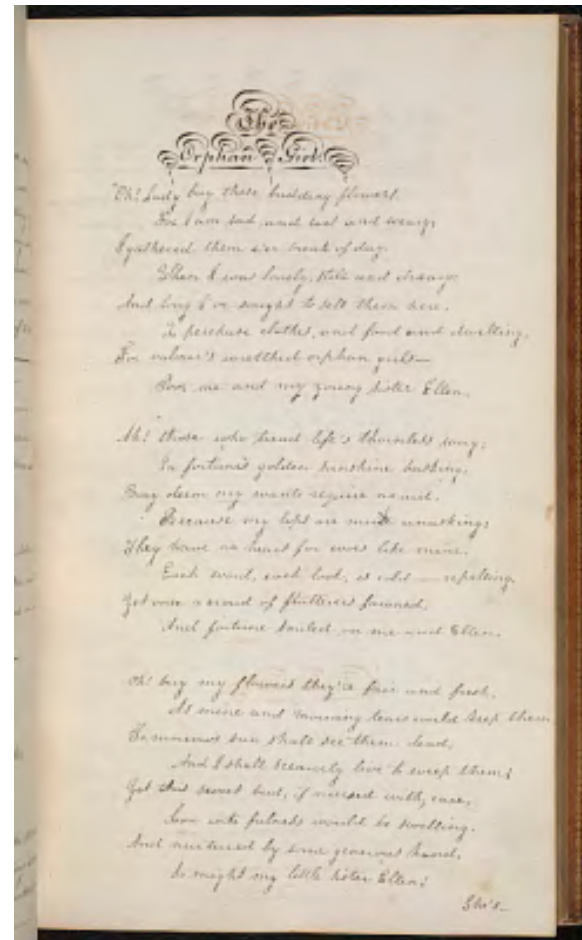 The
Orphan Girl.
Oh! Lady buy these budding flowers.
For I am sad, and wet and weary;
I gathered them e'er break of day.
When I was lonely, still and dreary.
And long I've sought to sell them here.
To purchase clothes, and food and dwelling,
For valour's wretched orphan girls—
Poor me and my young sister Ellen.
Ah! those who tread life's thornless way;
In fortune's golden sunshine basking,
May deem my wants require no aid.
Because my lips are mute unasking;
They have no heart for woes like mine.
Each word, each look, is cold—repelling.
Yet once a crowd of flatterers fawned,
And fortune smiled on me and Ellen.
Oh! buy my flowers they're fair and fresh,
As mine and morning tears could keep them
Tomorrows sun shall see them dead,
And I shall scarcely live to weep them;
Yet this sweet bud, if nursed with care,
Soon into would be swelling.
And nurtured by some generous hand,
So might my little sister Ellen!
She's—